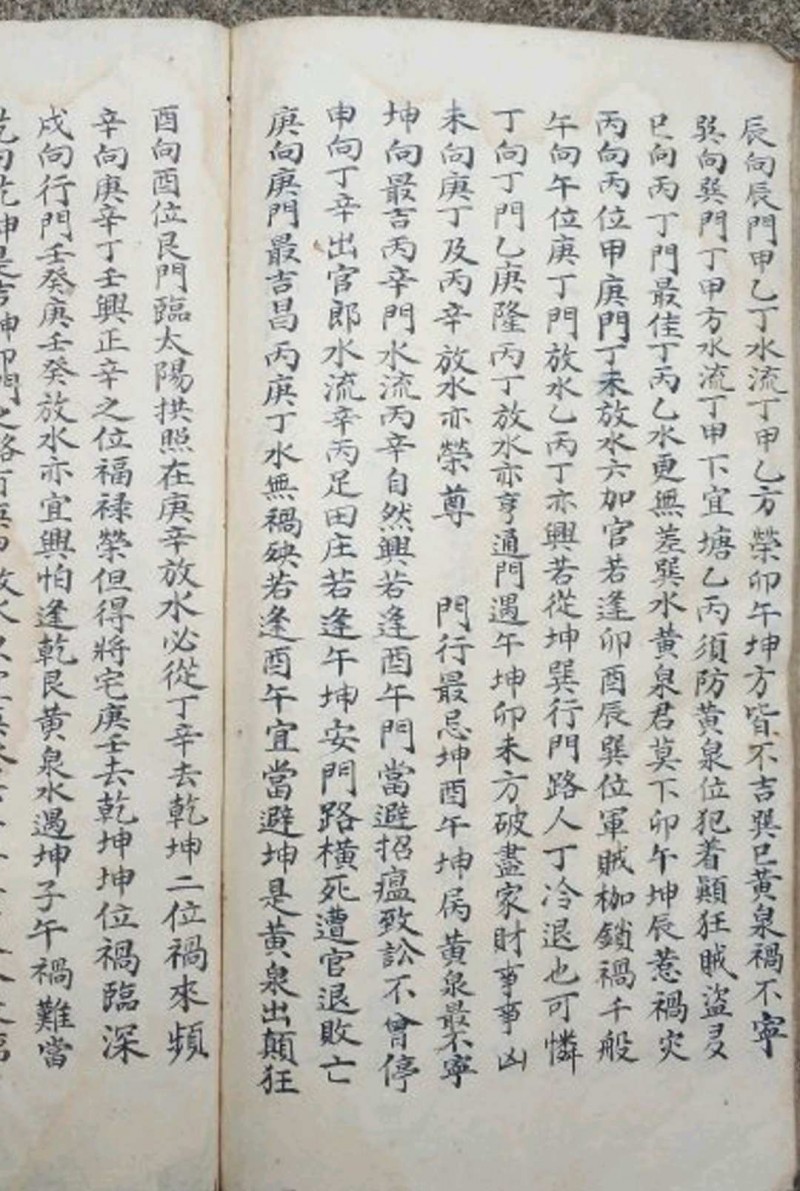 辰向辰門甲乙丁水流丁甲乙方榮卯午坤方皆不吉巽巳黃泉禍不寧
巽向巽門丁甲方水流丁甲下宜塘乙丙須防黃泉位犯着顛狂賊盜
巳向丙丁門最佳丁丙乙水更無差巽水黃泉君莫下卯午坤辰惹禍灾
丙向丙位甲庚門丁未放水六加官若逢卯酉辰巽位軍賊枷鎖禍千般
午向午位庚丁門放水乙丙丁亦興若從坤巽行門路人丁冷退也可憐
丁向丁門乙庚隆丙丁放水亦亨通門遇午坤卯未方破盡家財事事凶
未向庚丁及丙辛放水亦榮尊 門行最忌坤酉午坤為黃泉最不寧
坤向最吉丙辛門水流丙辛自然興若逢酉午門當避招瘟致訟不曾停
申向丁辛出官郎水流辛丙足田庄若逢午坤安門路橫死遭官退敗亡
庚向庚門最吉昌丙庚丁水無禍殃若逢酉午宜當避坤是黃泉出顛狂
酉向酉位艮門臨太陽拱照在庚辛放水必從丁辛去乾坤二位禍來頻
辛向庚辛丁壬興正辛之位福祿榮但得將宅庚壬去乾坤坤位禍臨深
戌向行門壬癸庚壬癸放水亦宜興怕逢乾艮黃泉水遇坤子午禍難當